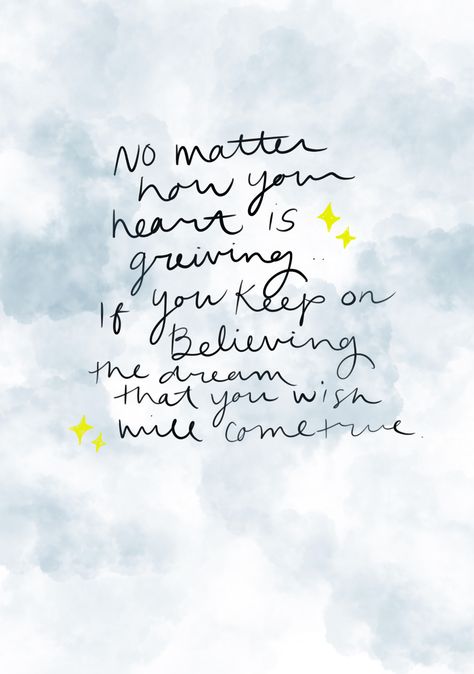 No matter
how your
heart is
greiving..
If you keep on
Believing
the dream
that you wish
will come true.